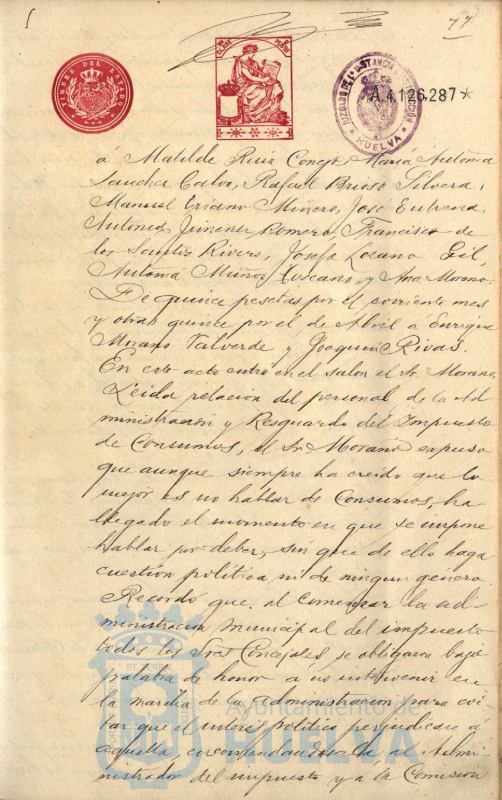 77
TIMBRE DEL ESTADO
JUZGADO DE 1ª INSTANCIA E INSTRUCCIÓN
HUELVA
A.4.126.287*
á Matilde Ruiz Conejo María Antonia
Sanchez Calvo, Rafael Brioso Silvera,
Manuel Triano Miñero, José Eutrena
Antonio Jimenez Romero, Francisco de
los Santos Rivero, Josefa Lozano Gil,
Antonia Muñoz Toscano, y Ana Moreno.
De quince pesetas por el corriente mes
y otras quince por el de Abril á Enrique
Morano Valverde y Joaquin Rivas.
En este acto entró en el salon el Sr. Morano.
Leida relación del personal de la Ad-
ministración y Resguardo del Impuesto
de Consumos, el Sr. Morano expuso
que aunque siempre ha creido que lo
mejor es no hablar de Consumos, ha
llegado el momento en que se impone
hablar por deber, sin que de ello haga
cuestión política ni de ningun genero
Recordó que al comenzar la ad-
ministracion municipal del impuesto
todos los Sres. Concejales se obligaron bajo
palabra de honor a no intervenir en
la marcha de la administración para evi-
tar que el interés político perjudicara á
aquella encomendandosela al Admi-
nistrador del impuesto y a la Comisión
Ayuntamiento de
HUELVA